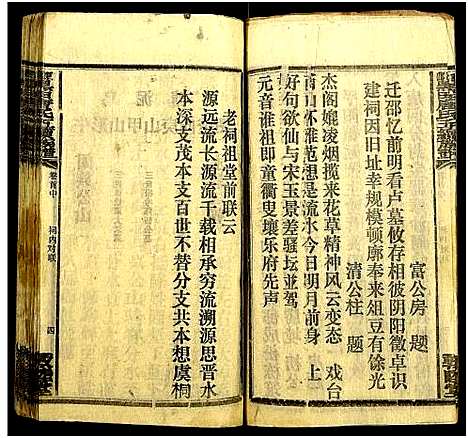 迁邵忆前明看卢墓攸存相彼阴阳徵卓识
富公房 题
建祠因旧址幸规模顿廓奉来俎豆有馀光
清公柱 题
杰阁嫓凌烟揽来花草精神风云变态 戏台
甫山怀雅范想是流水今日明月前身 上
好句欲仙与宋玉景差骚坛並驾
元音谁祖即童衢叟壤乐府先声
老祠祖堂前联云
源远流长源流千载相承穷流溯源思晋水
本深支茂本支百世不替分支共本想虞桐
卷首中 祠内对联 四